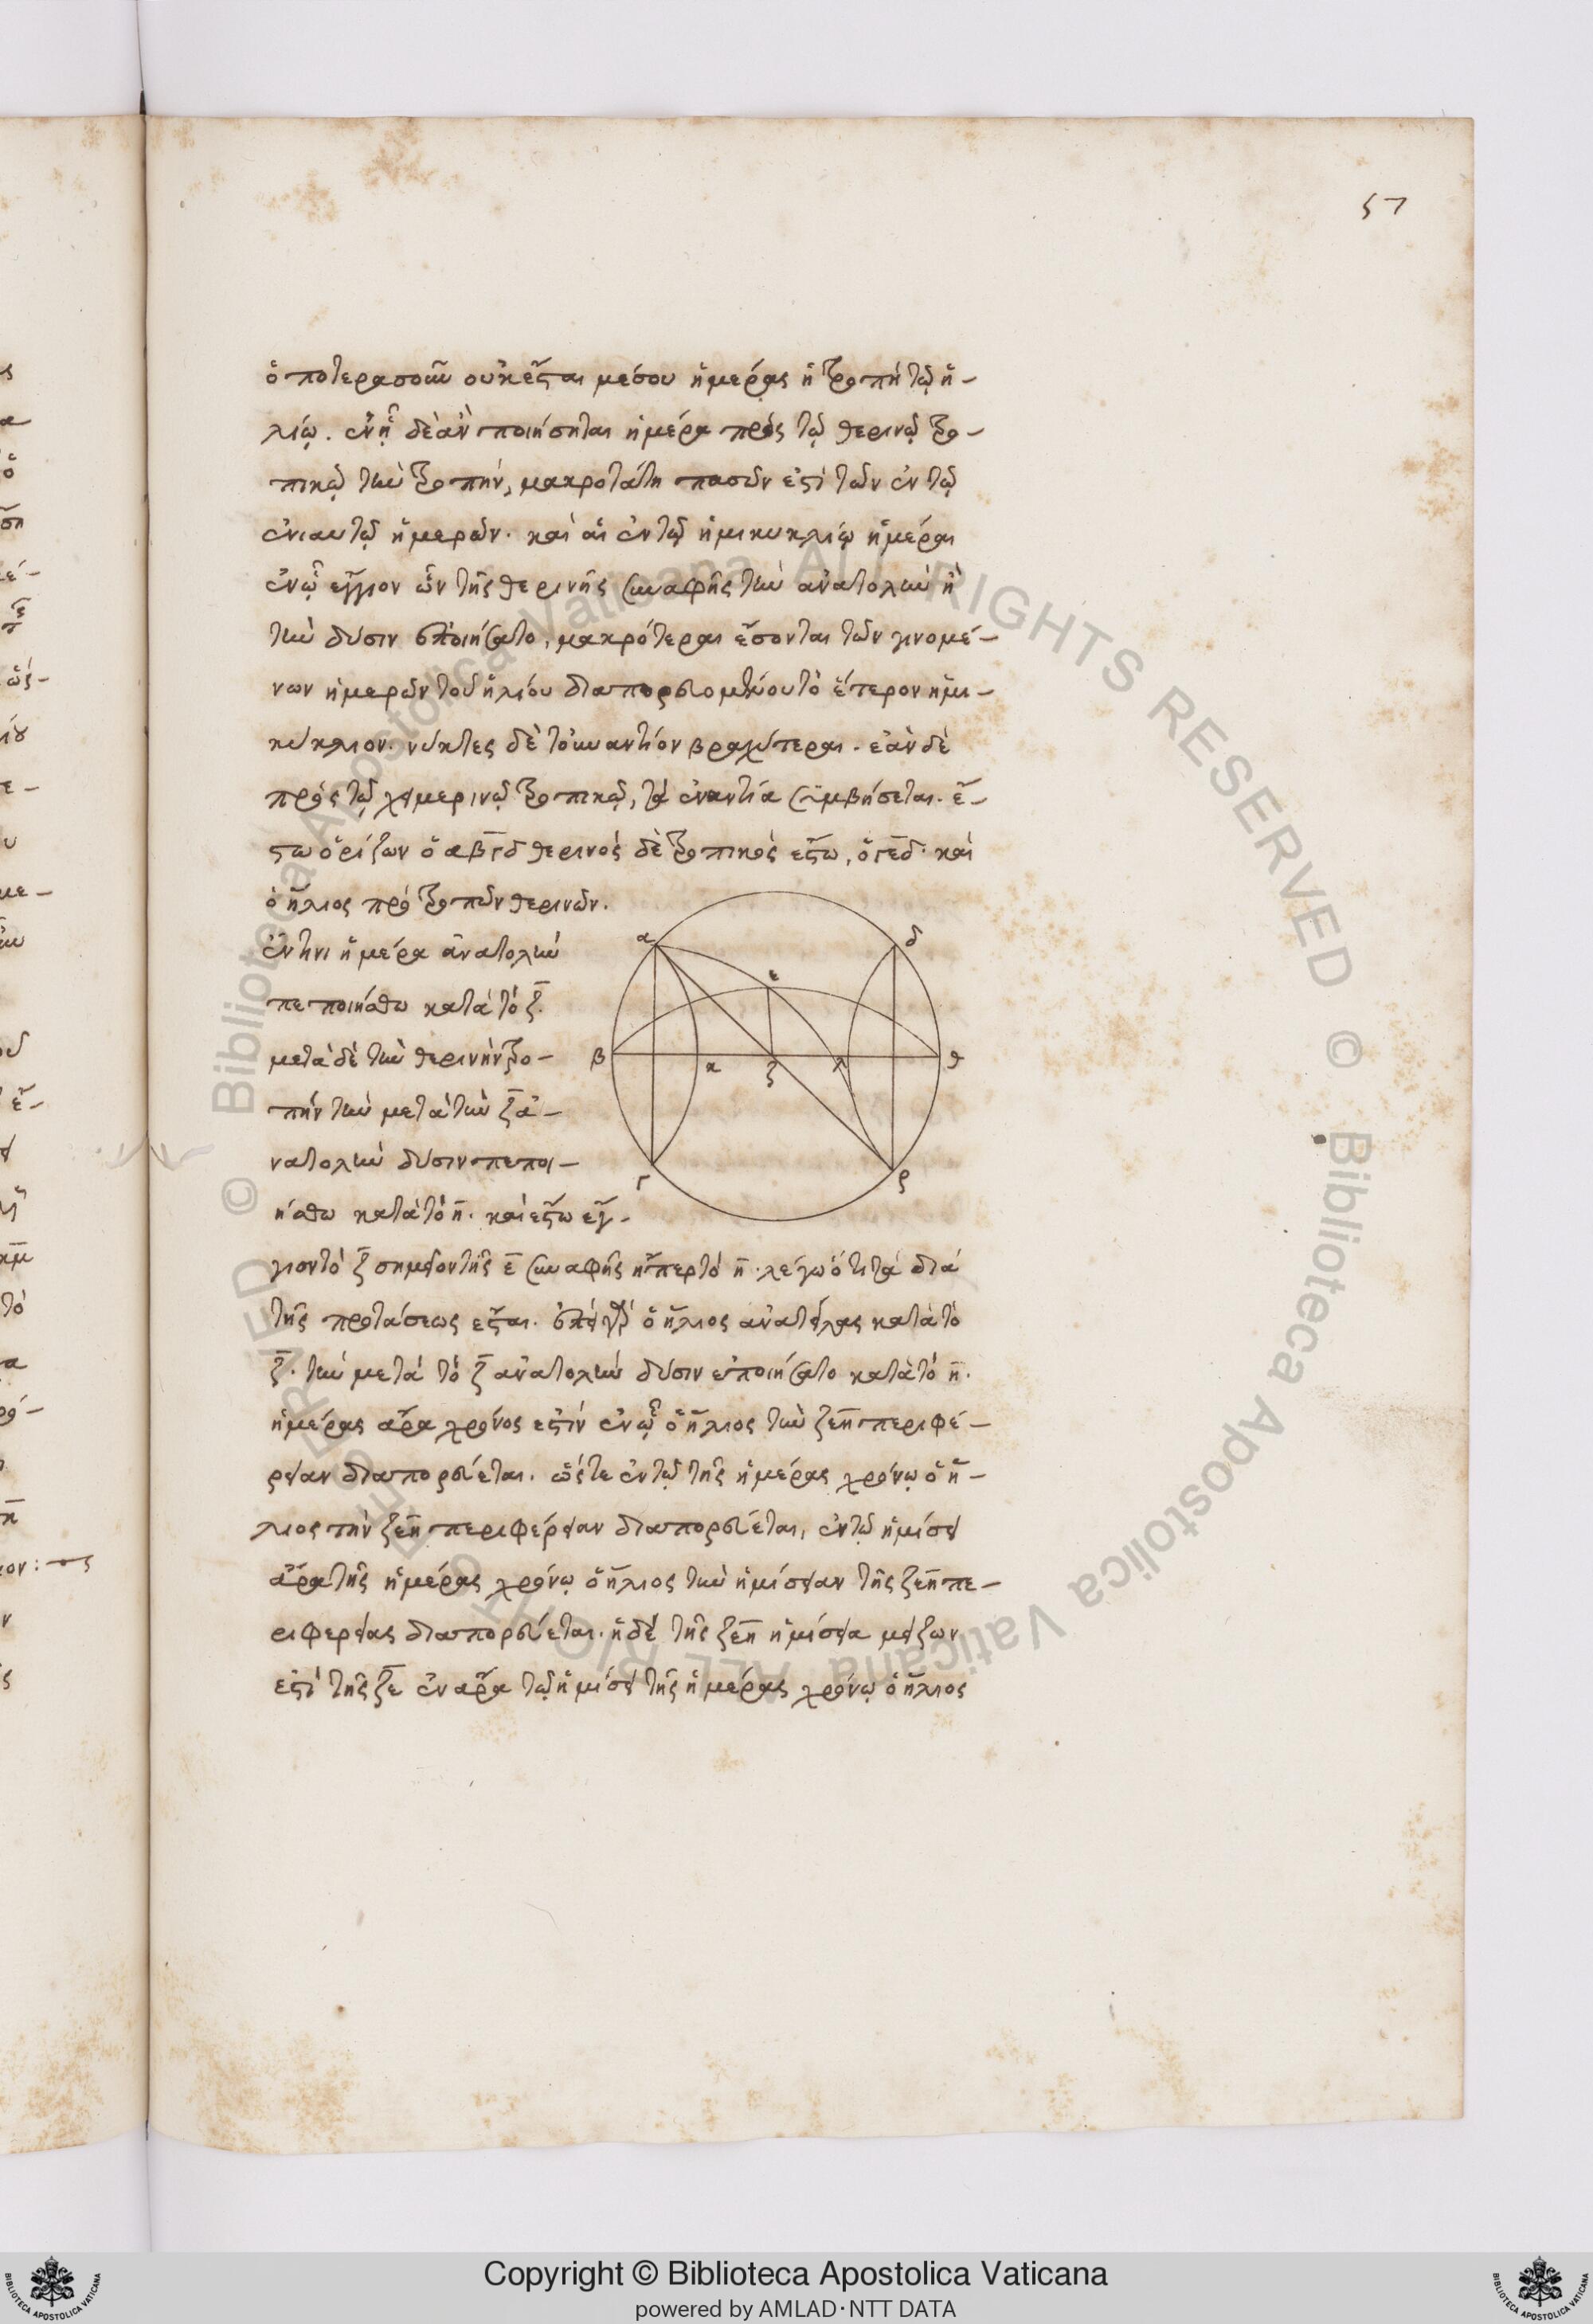 57
ὁποτερασοῦν οὐκ ἔσται μέσου ἡμέρας ἡ τροπὴ τῷ ἡ-
λίῳ. ἐν ᾗ δὲ ἂν ποιήσηται ἡμέρα πρὸς τῷ θερινῷ τρο-
πικῷ τὴν τροπήν, μακροτάτη πασῶν ἐστὶ τῶν ἐν τῷ
ἐνιαυτῷ ἡμερῶν. καὶ αἱ ἐν τῷ ἡμικυκλίῳ ἡμέραι
ἐν ᾧ ἔγγιον ὢν τῆς θερινῆς συναφῆς τὴν ἀνατολὴν ἢ
τὴν δύσιν ἐποιήσατο, μακρότεραι ἔσονται τῶν γινομέ-
νων ἡμερῶν τοῦ ἡλίου διαπορευομένου τὸ ἕτερον ἡμι-
κύκλιον. νύκτες δὲ τοὐναντίον βραχύτεραι. ἐὰν δὲ
πρὸς τῷ χειμερινῷ τροπικῷ, τὰ ἐναντία συμβήσεται. ἔ-
στω ὁρίζων ὁ αβγδ θερινὸς δὲ τροπικὸς ἔστω, ὁ γεδ. καὶ
ὁ ἥλιος πρὸ τροπῶν θερινῶν.
ἔν τινι ἡμέρα ἀνατολὴν
πεποιήσθω κατὰ τὸ ζ.
μετὰ δὲ τὴν θερινὴν τρο-
πὴν τὴν μετὰ τὴν ζ ἀ-
νατολὴν δύσιν πεποι-
ήσθω κατὰ τὸ η. καὶ ἔστω ἔγ-
γιον τὸ ζ σημεῖον τῆς ε συναφῆς ἤπερ τὸ η. λέγω ὅτι τὰ διὰ
τῆς προτάσεως ἔσται. ἐπεὶ γὰρ ὁ ἥλιος ἀνατείλας κατὰ τὸ
ζ. τὴν μετὰ τὸ ζ ἀνατολὴν δύσιν ἐποιήσατο κατὰ τὸ η.
ἡμέρας ἄρα χρόνος ἐστίν ἐν ᾧ ὁ ἥλιος τὴν ζεη περιφέ-
ρειαν διαπορεύεται. ὥστε ἐν τῷ τῆς ἡμέρας χρόνῳ ὁ ἥ-
λιος τὴν ζεη περιφέρειαν διαπορεύεται, ἐν τῷ ἡμίσει
ἄρα τῆς ἡμέρας χρόνῳ ὁ ἥλιος τὴν ἡμίσειαν τῆς ζεη πε-
ριφερείας διαπορεύεται. ἡ δὲ τῆς ζεη ἡμίσεια μείζων
ἐστὶ τῆς ζε ἐν ἄρα τῷ ἡμίσει τῆς ἡμέρας χρόνῳ ὁ ἥλιος
α δ
ε
β κ ζ λ θ
γ ρ
Copyright © Biblioteca Apostolica Vaticana
powered by AMLAD·NTT DATA